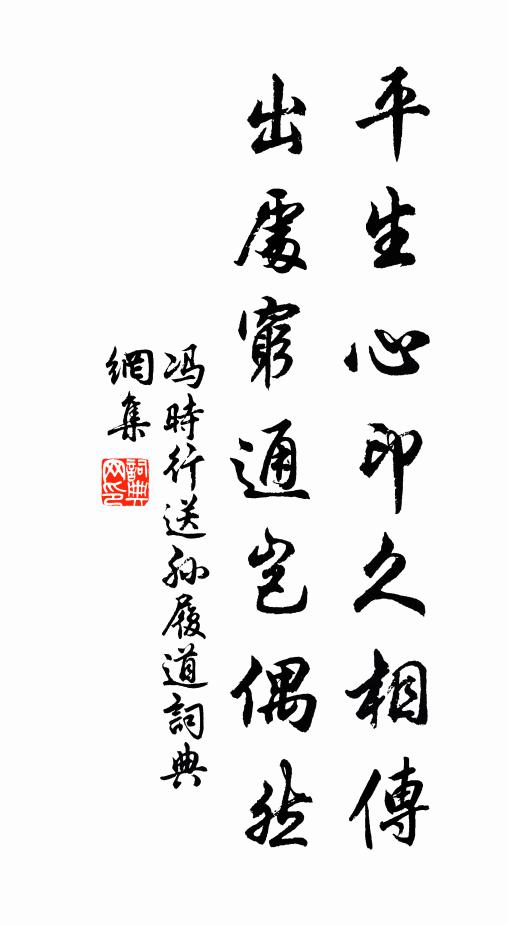 平生心印久相傳
出處窮通豈偶然
冯時行送孙履道詞典
網集
詞典網印